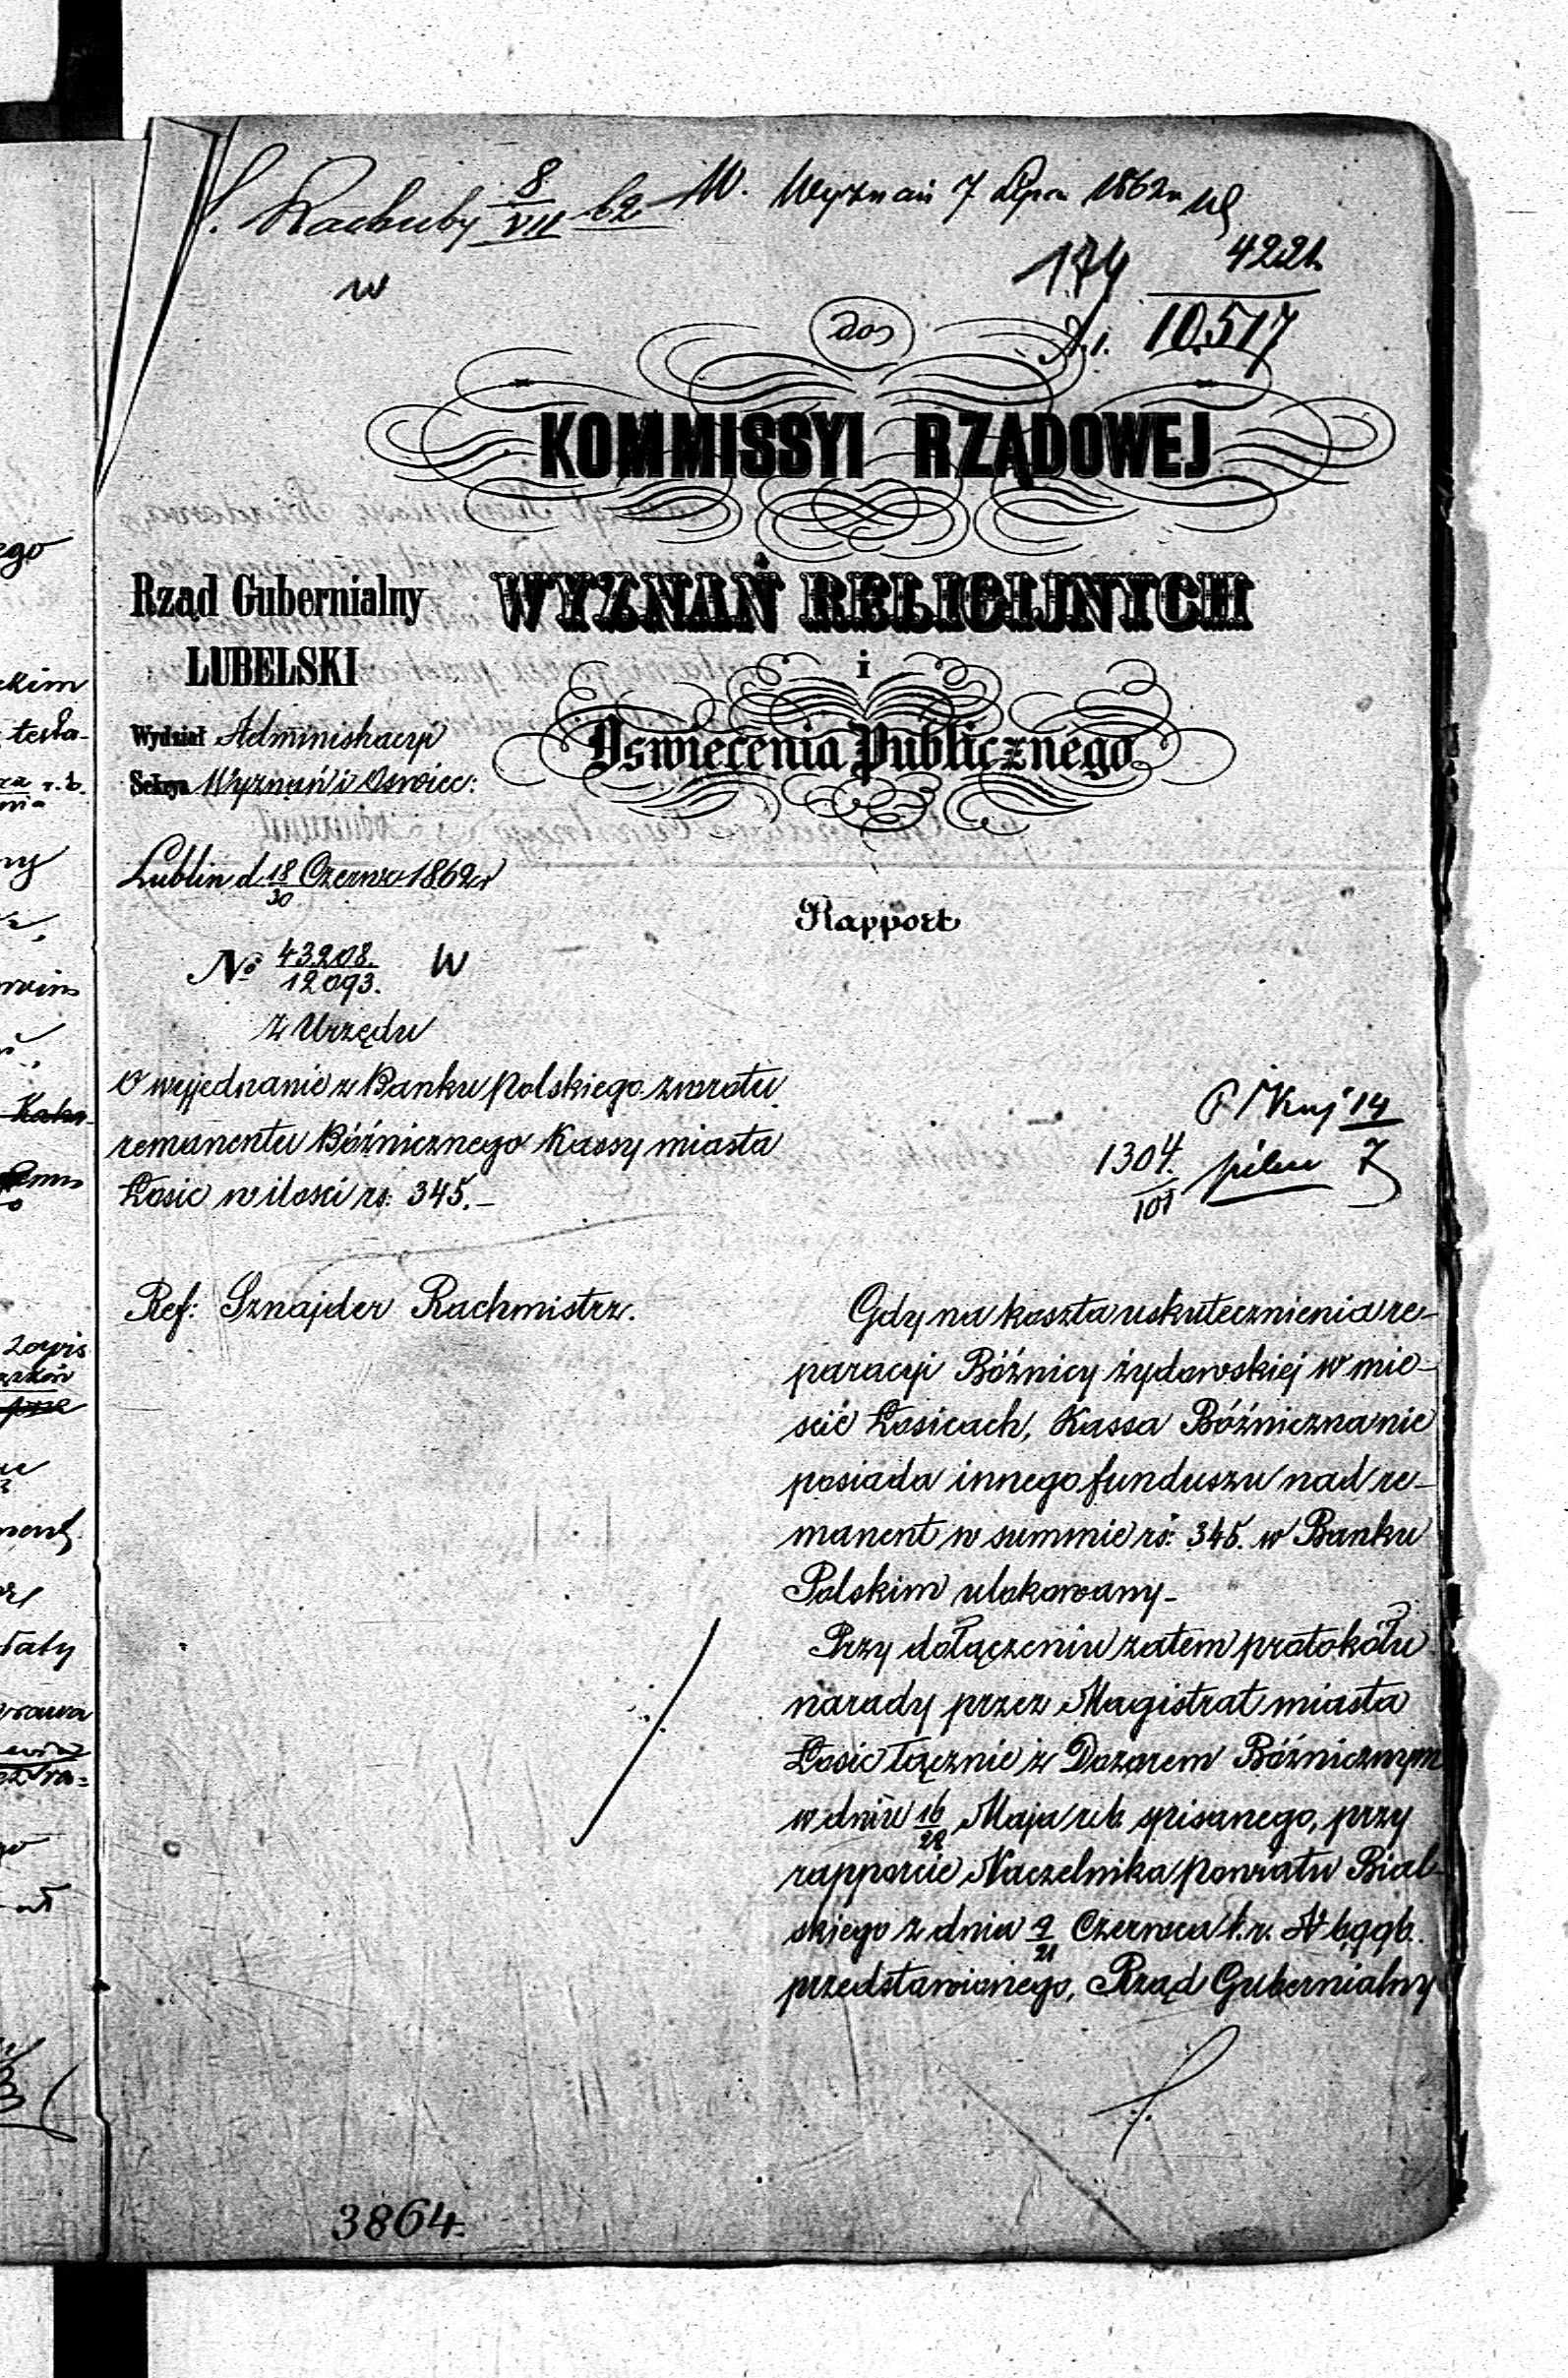 Rachuby 8/VII 62 W. Wyznań 7 Lipca 1862
W
174 4221
10.517
Do
KOMMISSYI RZĄDOWEJ
Rząd Gubernialny
LUBELSKI
WYZNAŃ RELIGIJNYCH
i
Oswiecenia Publicznego
Wydział Administracyi
Sekcya Wyznań i Oswiec:
Lublin d 18/30 Czerwca 1862 r
Rapport
No 43208./12093. W
Z Urzędu
O wyjednanie z Banku Polskiego zwrotu
remanentu Bóźnicznego Kassy miasta
Łosic w ilości rs: 345.–
14
1304./101 pilne 7
Ref: Sznajder Rachmistrz.
Gdy na koszta uskutecznienia re-
paracyi Bóźnicy żydowskiej w mie-
ście Łosicach, Kassa Bóźniczna nie
posiada innego funduszu nad re-
manent w summie rs: 345. w Banku
Polskim ulokowany–
Przy dołączeniu zatem protokółu
narady przez Magistrat miasta
Łosic łącznie z Dozorem Bóźnicznym
w dniu 16/28 Maja r.b. spisanego, przy
rapporcie Naczelnika Powiatu Bial-
skiego z dnia 9/21 Czerwca t.r. N 6996.
przedstawionego, Rząd Gubernialny
3864.